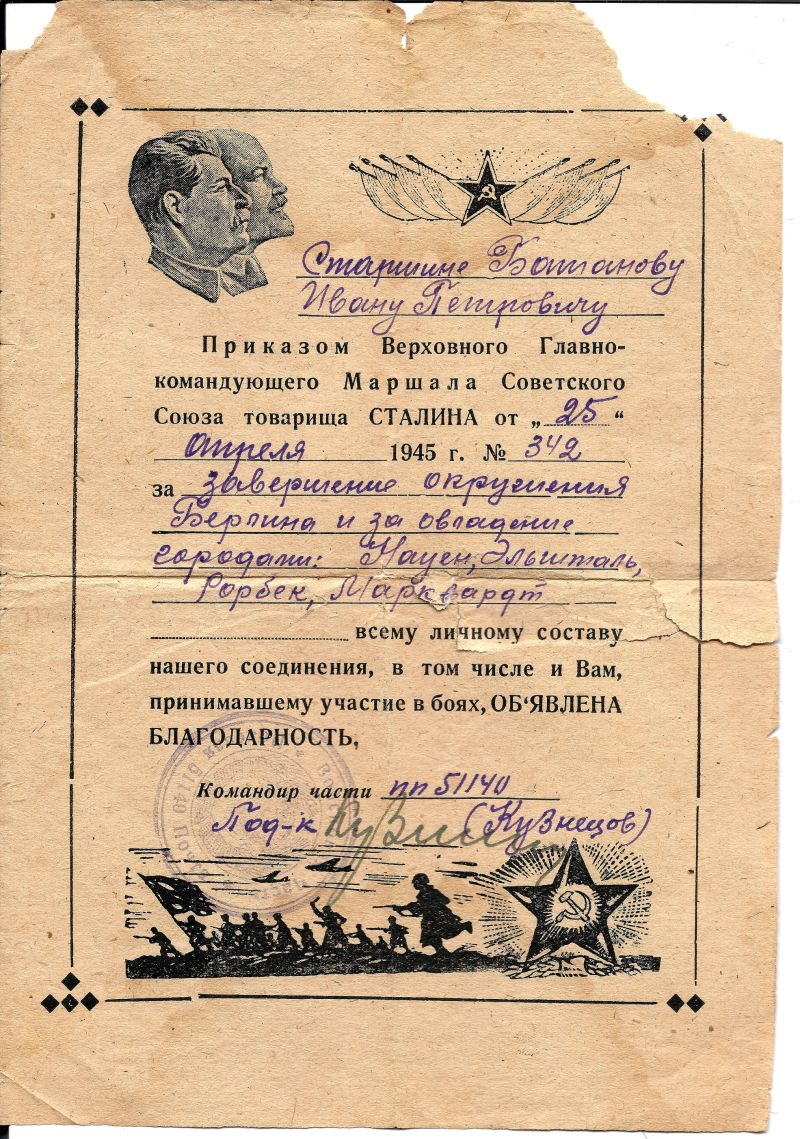 Старшине Батанову
Ивану Петровичу
Приказом Верховного Главно-
командующего Маршала Советского
Союза товарища СТАЛИНА от „25“
Апреля 1945 г. № 342
за завершение окружения
Берлина и за овладение
городами: Науен, Эльшталь,
Рорбек, Марквардт
всему личному составу
нашего соединения, в том числе и Вам,
принимавшему участие в боях, ОБ‘ЯВЛЕНА
БЛАГОДАРНОСТЬ,
Командир части пп 51140
Под-к (Кузнецов)